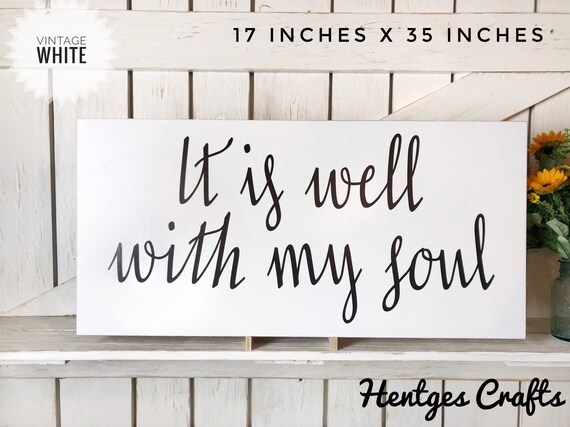 VINTAGE
WHITE
17 INCHES X 35 INCHES
It is well
with my soul
Hentges Crafts